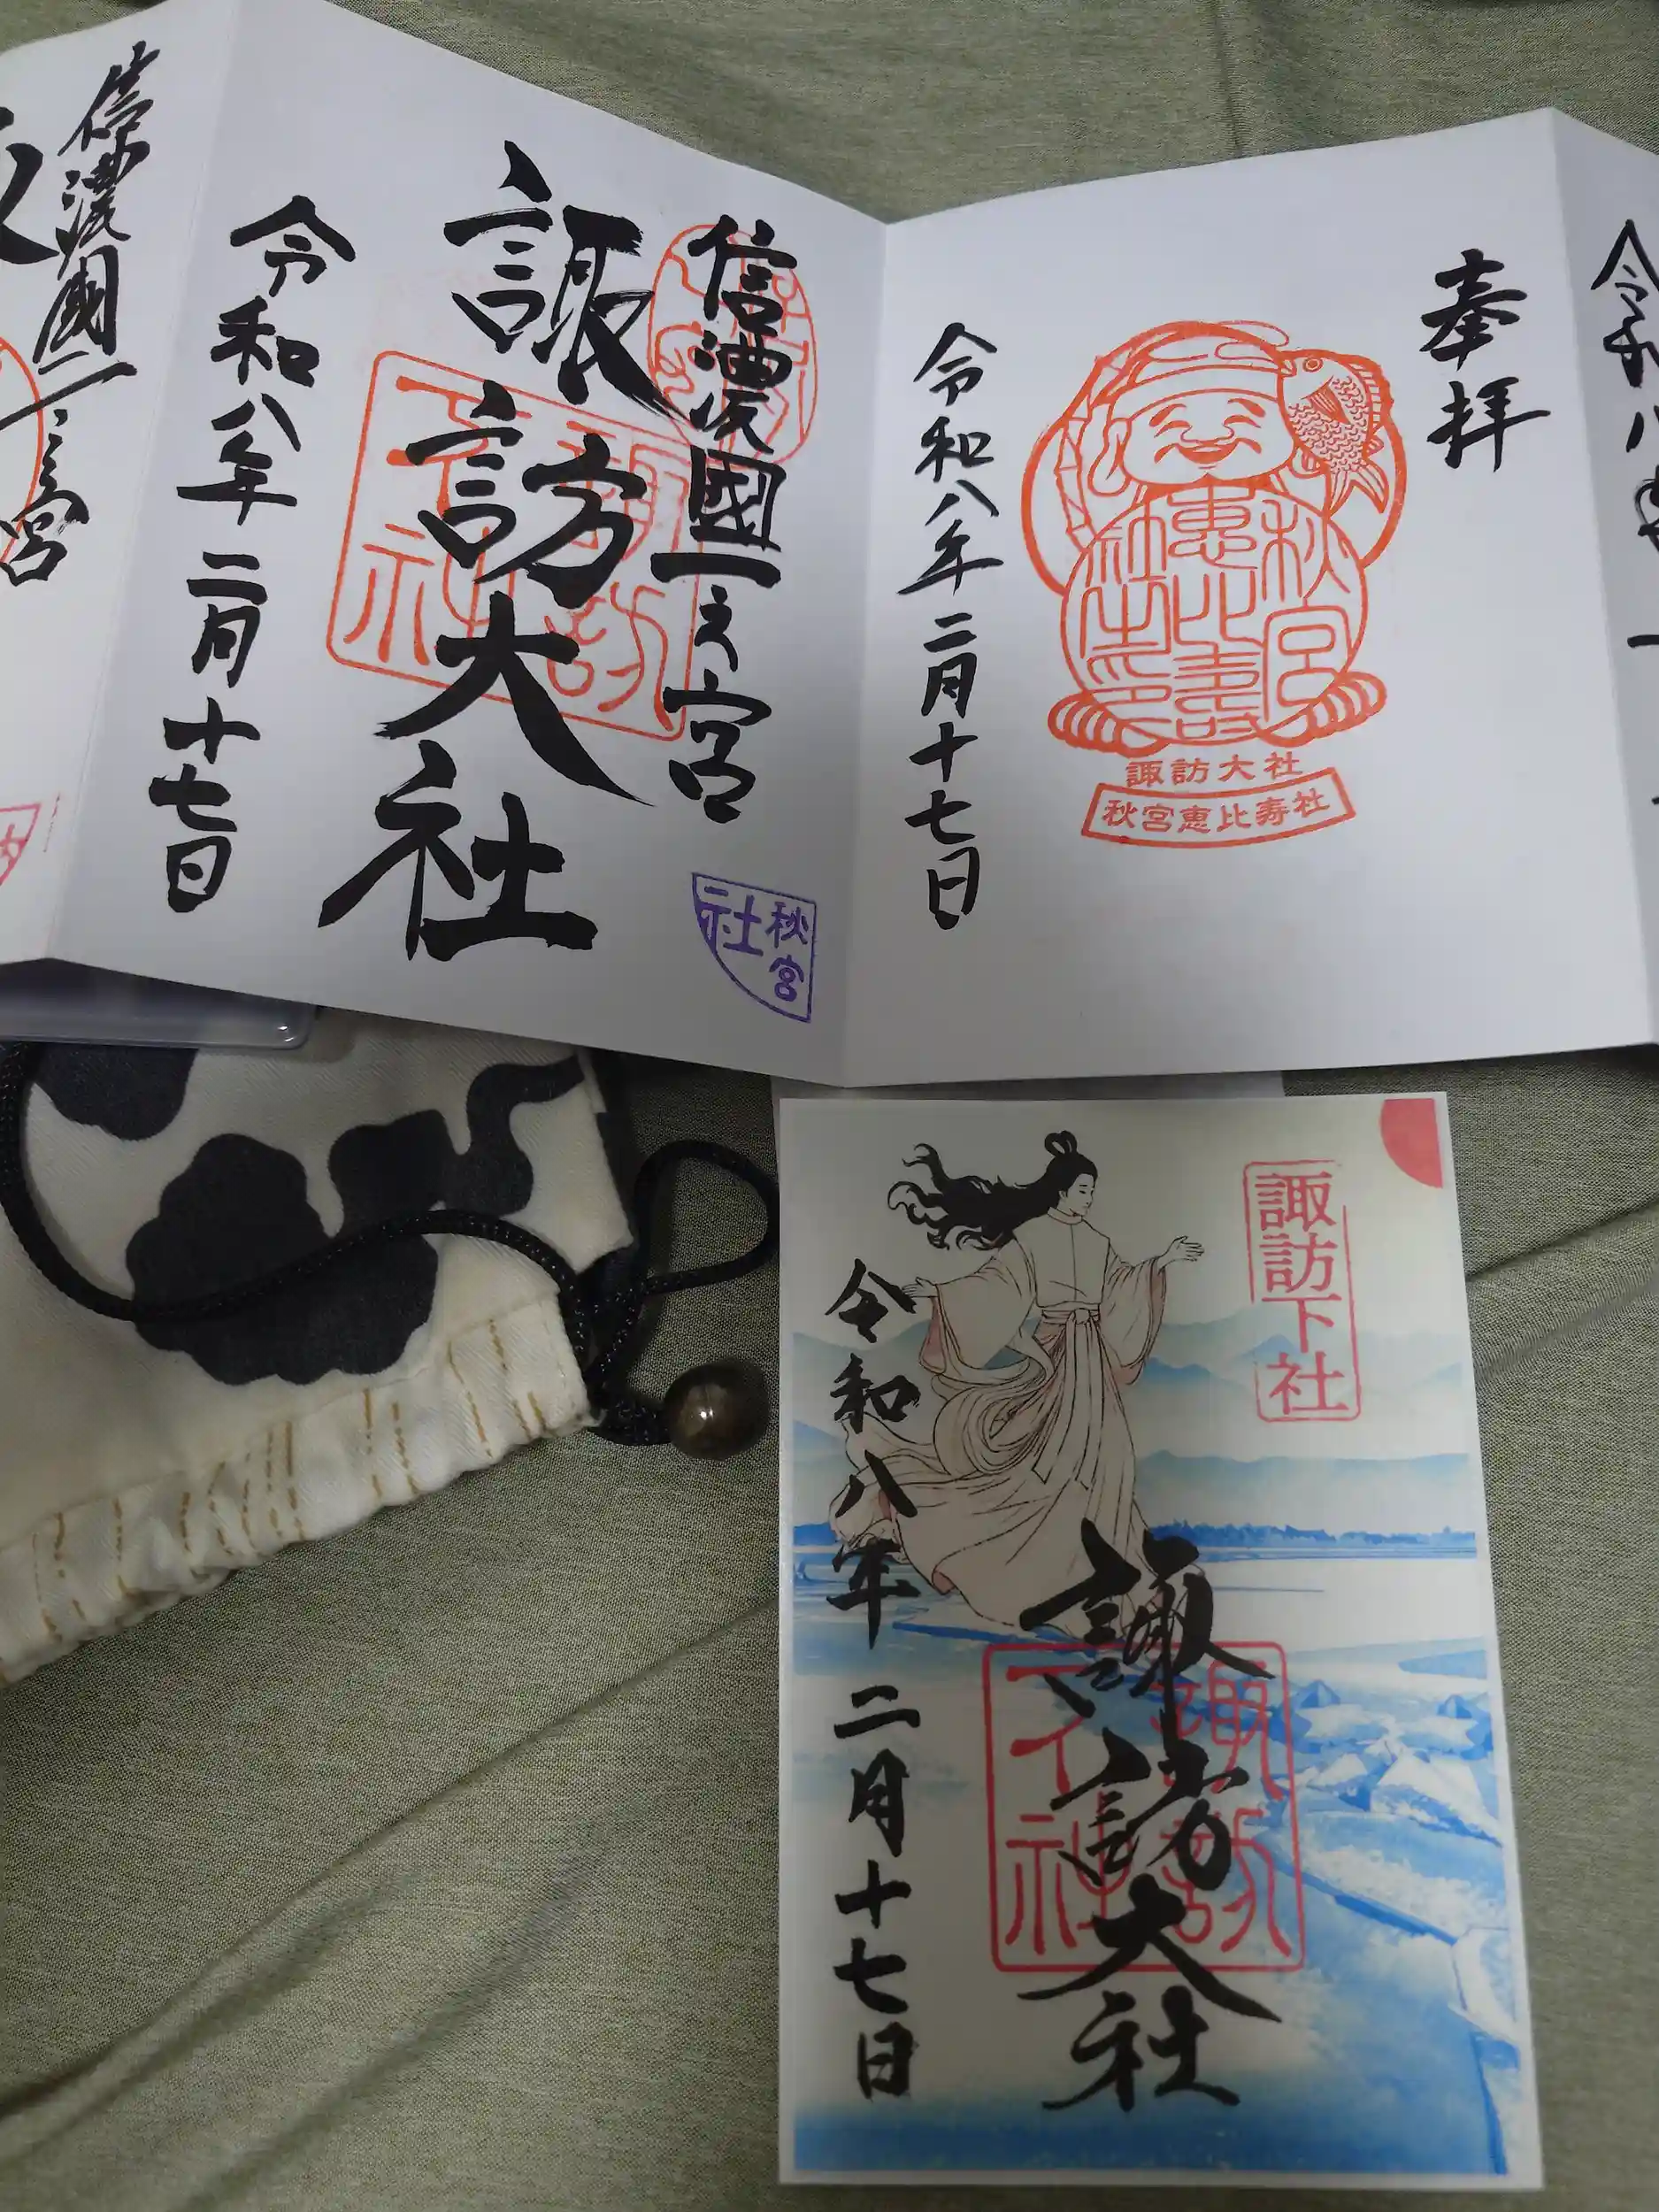 信濃國一之宮
諏訪大社
令和八年二月十七日
秋宮
社
奉拝
秋宮
恵比寿
社之印
諏訪大社
秋宮恵比寿社
令和八年二月十七日
信濃國一之宮
令和八
諏訪下社
諏訪大社
諏訪
下社
令和八年二月十七日